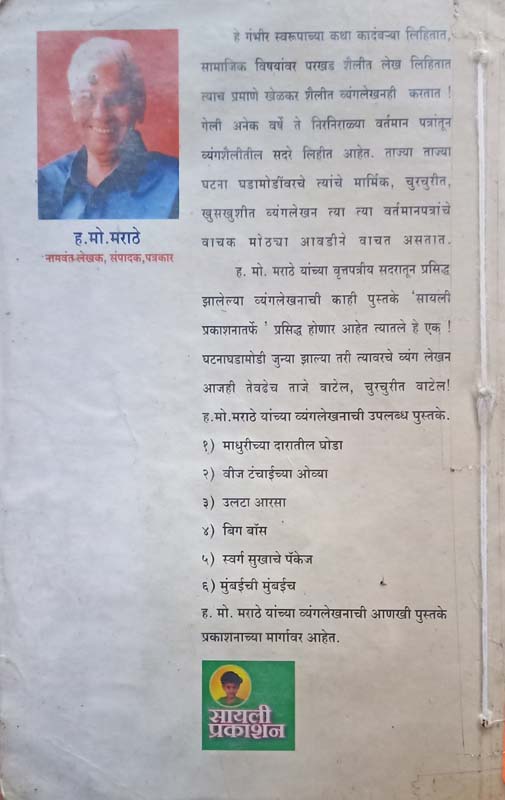 ह.मो.मराठे
नामवंत लेखक, संपादक,पत्रकार
हे गंभीर स्वरूपाच्या कथा कादंबऱ्या लिहितात,
सामाजिक विषयांवर परखड शैलीत लेख लिहितात
त्याच प्रमाणे खेळकर शैलीत व्यंगलेखनही करतात !
गेली अनेक वर्षे ते निरनिराळ्या वर्तमान पत्रांतून
व्यंगशैलीतील सदरे लिहीत आहेत. ताज्या ताज्या
घटना घडामोडींवरचे त्यांचे मार्मिक, चुरचुरीत,
खुसखुशीत व्यंगलेखन त्या त्या वर्तमानपत्रांचे
वाचक मोठ्या आवडीने वाचत असतात.
ह. मो. मराठे यांच्या वृत्तपत्रीय सदरातून प्रसिद्ध
झालेल्या व्यंगलेखनाची काही पुस्तके 'सायली
प्रकाशनातर्फे ' प्रसिद्ध होणार आहेत त्यातले हे एक !
घटनाघडामोडी जुन्या झाल्या तरी त्यावरचे व्यंग लेखन
आजही तेवढेच ताजे वाटेल, चुरचुरीत वाटेल!
ह.मो.मराठे यांच्या व्यंगलेखनाची उपलब्ध पुस्तके.
१) माधुरीच्या दारातील घोडा
२) वीज टंचाईच्या ओव्या
३) उलटा आरसा
४) बिग बॉस
५) स्वर्ग सुखाचे पॅकेज
६) मुंबईची मुंबईच
ह. मो. मराठे यांच्या व्यंगलेखनाची आणखी पुस्तके
प्रकाशनाच्या मार्गावर आहेत.
सायली
प्रकाशन